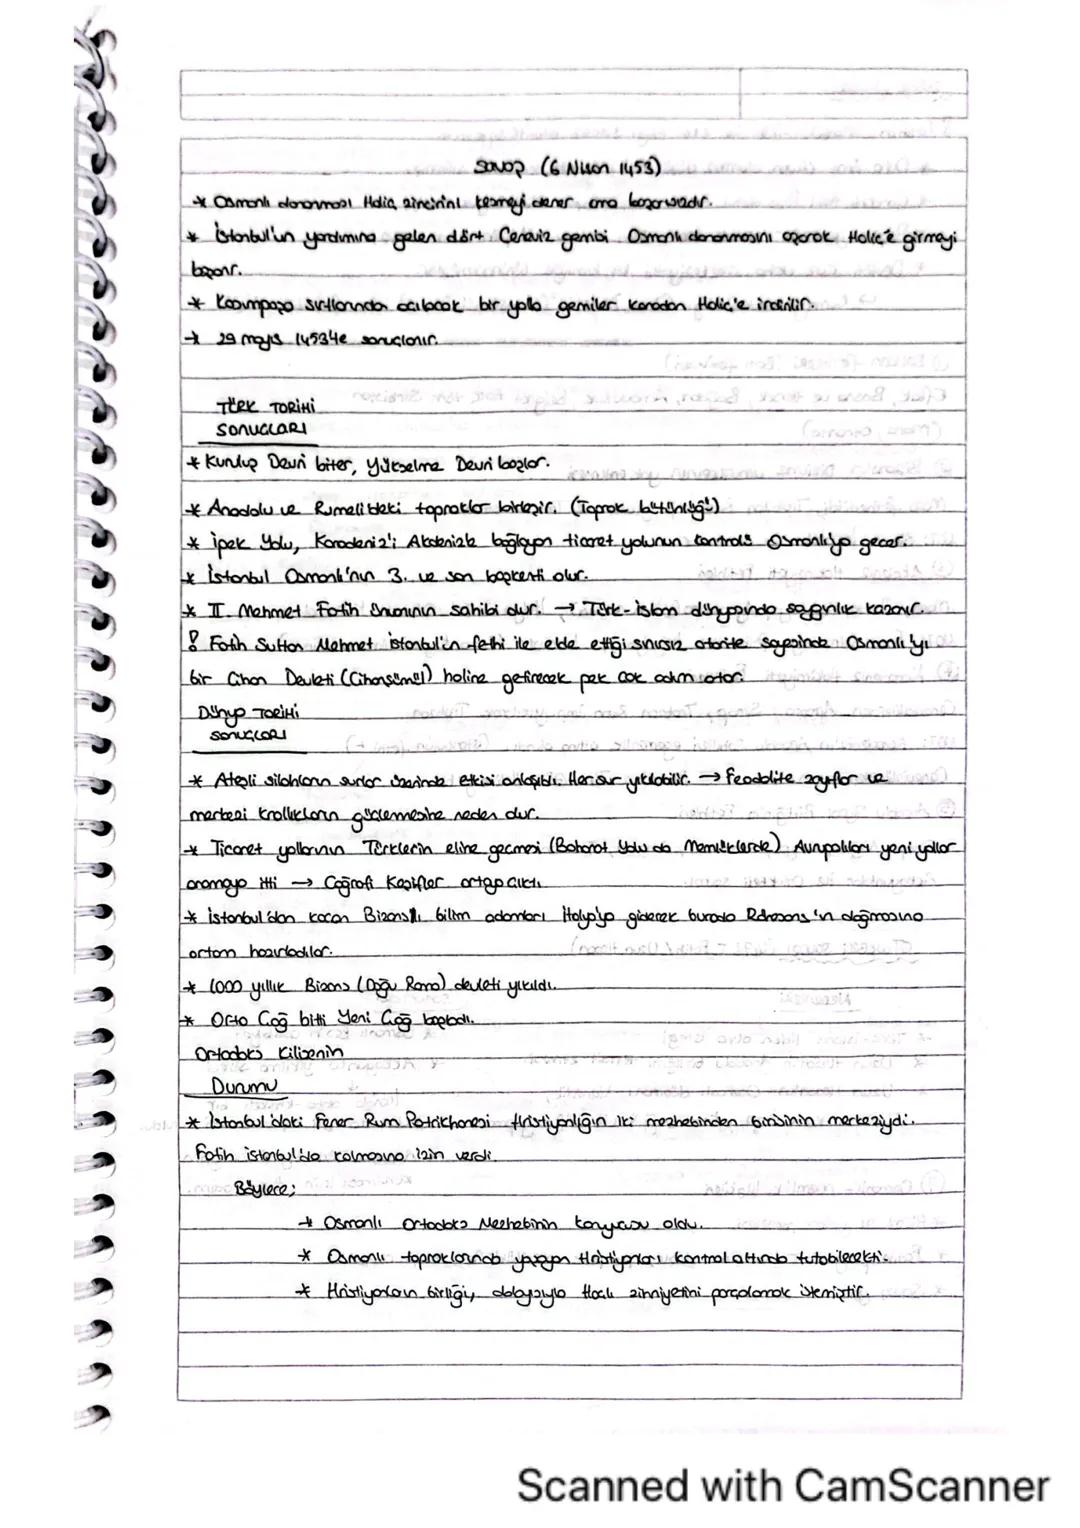 Savaş (6 Nisan 1453)
* Osmanlı donanması Haliç zincirini kesmeyi dener ama başarısızdır.
* İstanbul'un yardımına gelen dört Ceneviz gemisi Osmanlı donanmasını aşarak Haliç'e girmeyi
başarır.
* Kasımpaşa sırtlarından açılacak bir yolla gemiler karadan Haliç'e indirilir.
* 29 mayıs 1453'te sonuçlanır.
TÜRK TARİHİ
SONUÇLARI
* Kuruluş Devri biter, Yükselme Devri başlar.
* Anadolu ve Rumeli'deki topraklar birleşir. (Toprak bütünlüğü)
* İpek Yolu, Karadeniz'i Akdenizle bağlayan ticaret yolunun kontrolü Osmanlıya geçer.
* İstanbul Osmanlı'nın 3. ve son başkenti olur.
* II. Mehmet Fatih Ünvanının sahibi olur. → Türk-islam dünyasında saygınlık kazanır.
! Fatih Sultan Mehmet İstanbul'un fethi ile elde ettiği sınırsız otorite sayesinde Osmanlı'yı
bir Cihan Devleti (Cihanşümul) haline getirecek pek çok adım atar.
Dünya TARİHİ
SONUÇLARI
* Ateşli silahların surlar üzerinde etkisi anlaşıldı. Her sur yıkılabilir. → Feodalite zayıflar ve
merkezi krallıkların güçlenmesine neden olur.
* Ticaret yollarının Türklerin eline geçmesi (Baharat Yolu da Memlüklerde) Avrupalıları yeni yollar
aramaya itti → Coğrafi Keşifler ortaya çıktı.
* İstanbul'dan kaçan Bizanslı bilim adamları İtalya'ya giderek burada Rönesans'ın doğmasına
ortam hazırladılar.
* 1000 yıllık Bizans (Doğu Roma) devleti yıkıldı.
* Orta Çağ bitti Yeni Çağ başladı.
Ortodoks Kilisenin
Durumu
* İstanbul'daki Fener Rum Patrikhanesi Hristiyanlığın iki mezhebinden birisinin merkeziydi.
Fatih İstanbul'da kalmasına izin verdi.
Böylece;
* Osmanlı Ortodoks Mezhebinin koruyucusu oldu.
* Osmanlı topraklarında yaşayan Hristiyanları kontrol altında tutabilecekti.
* Hristiyanların birliği, dolayısıyla Haçlı zihniyetini parçalamak istemiştir.
Scanned with CamScanner